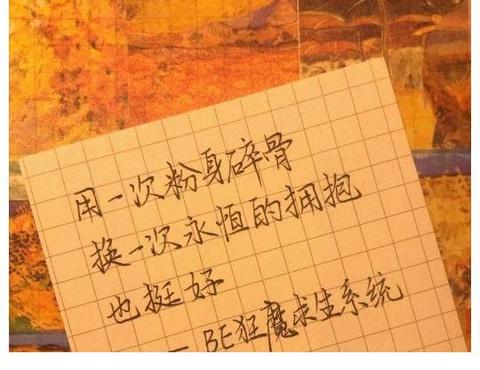 用一次粉身碎骨
换一次永恒的拥抱
也挺好
—BE狂魔求生系统